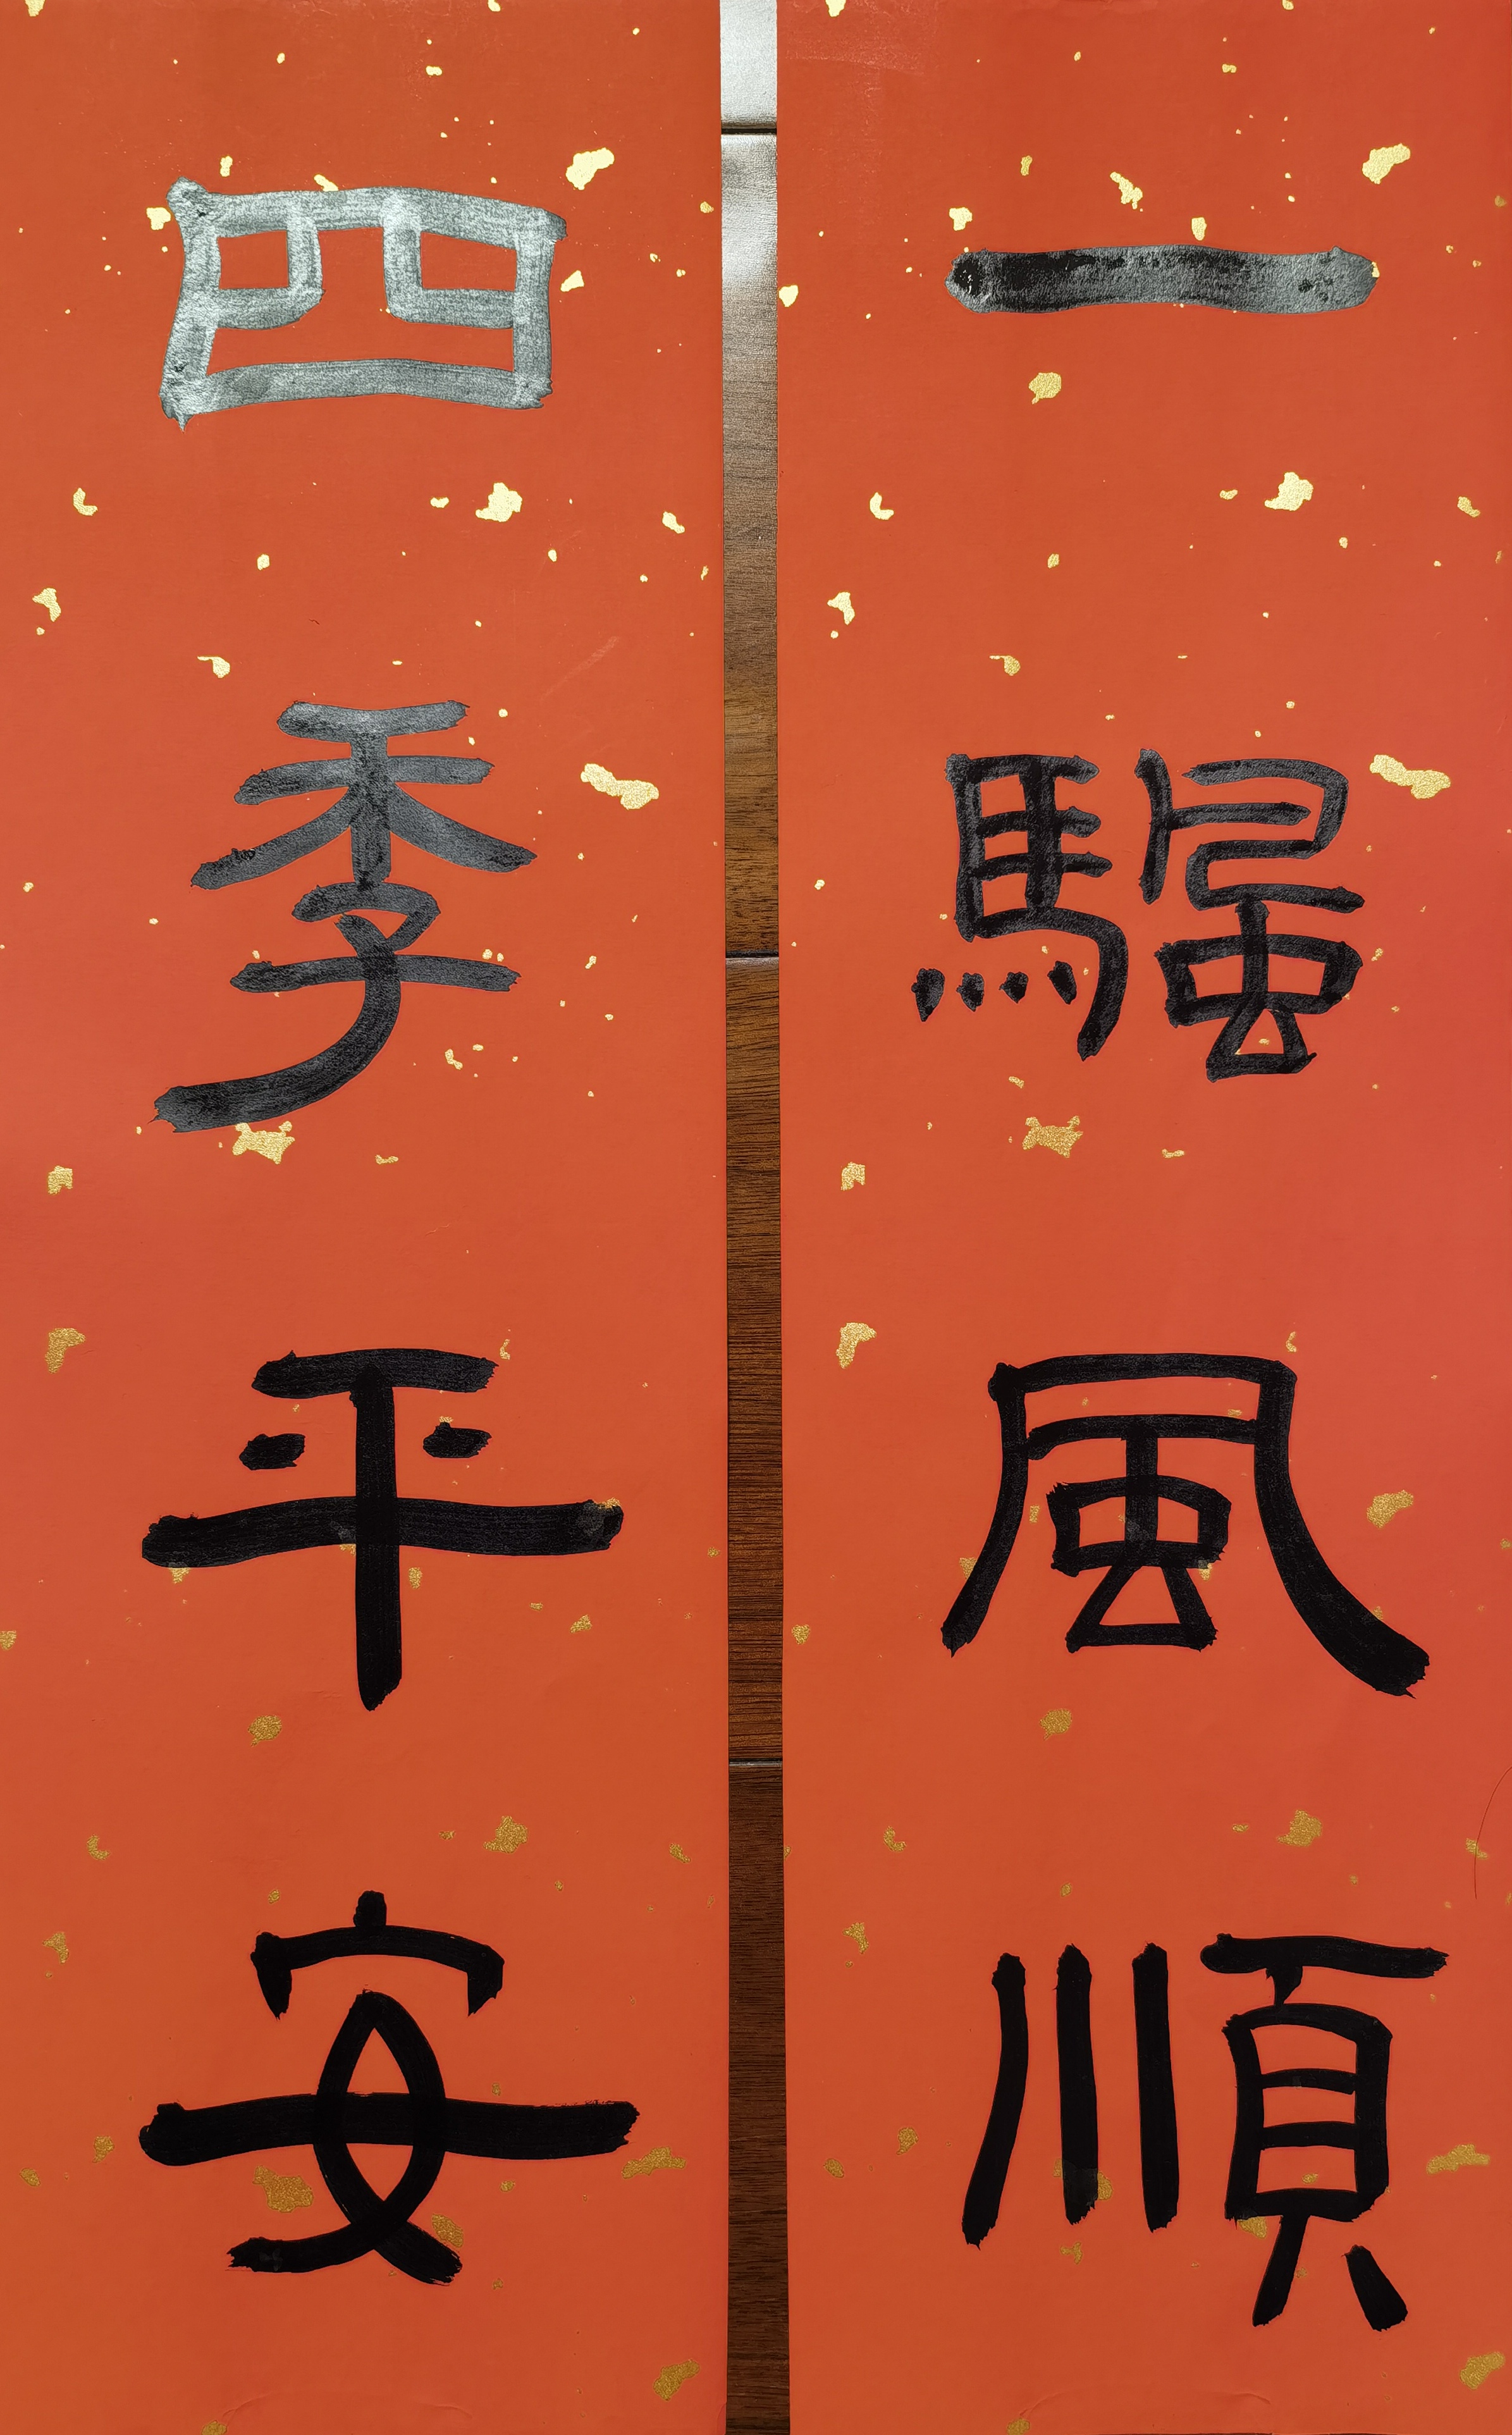 一颿風順
四季平安